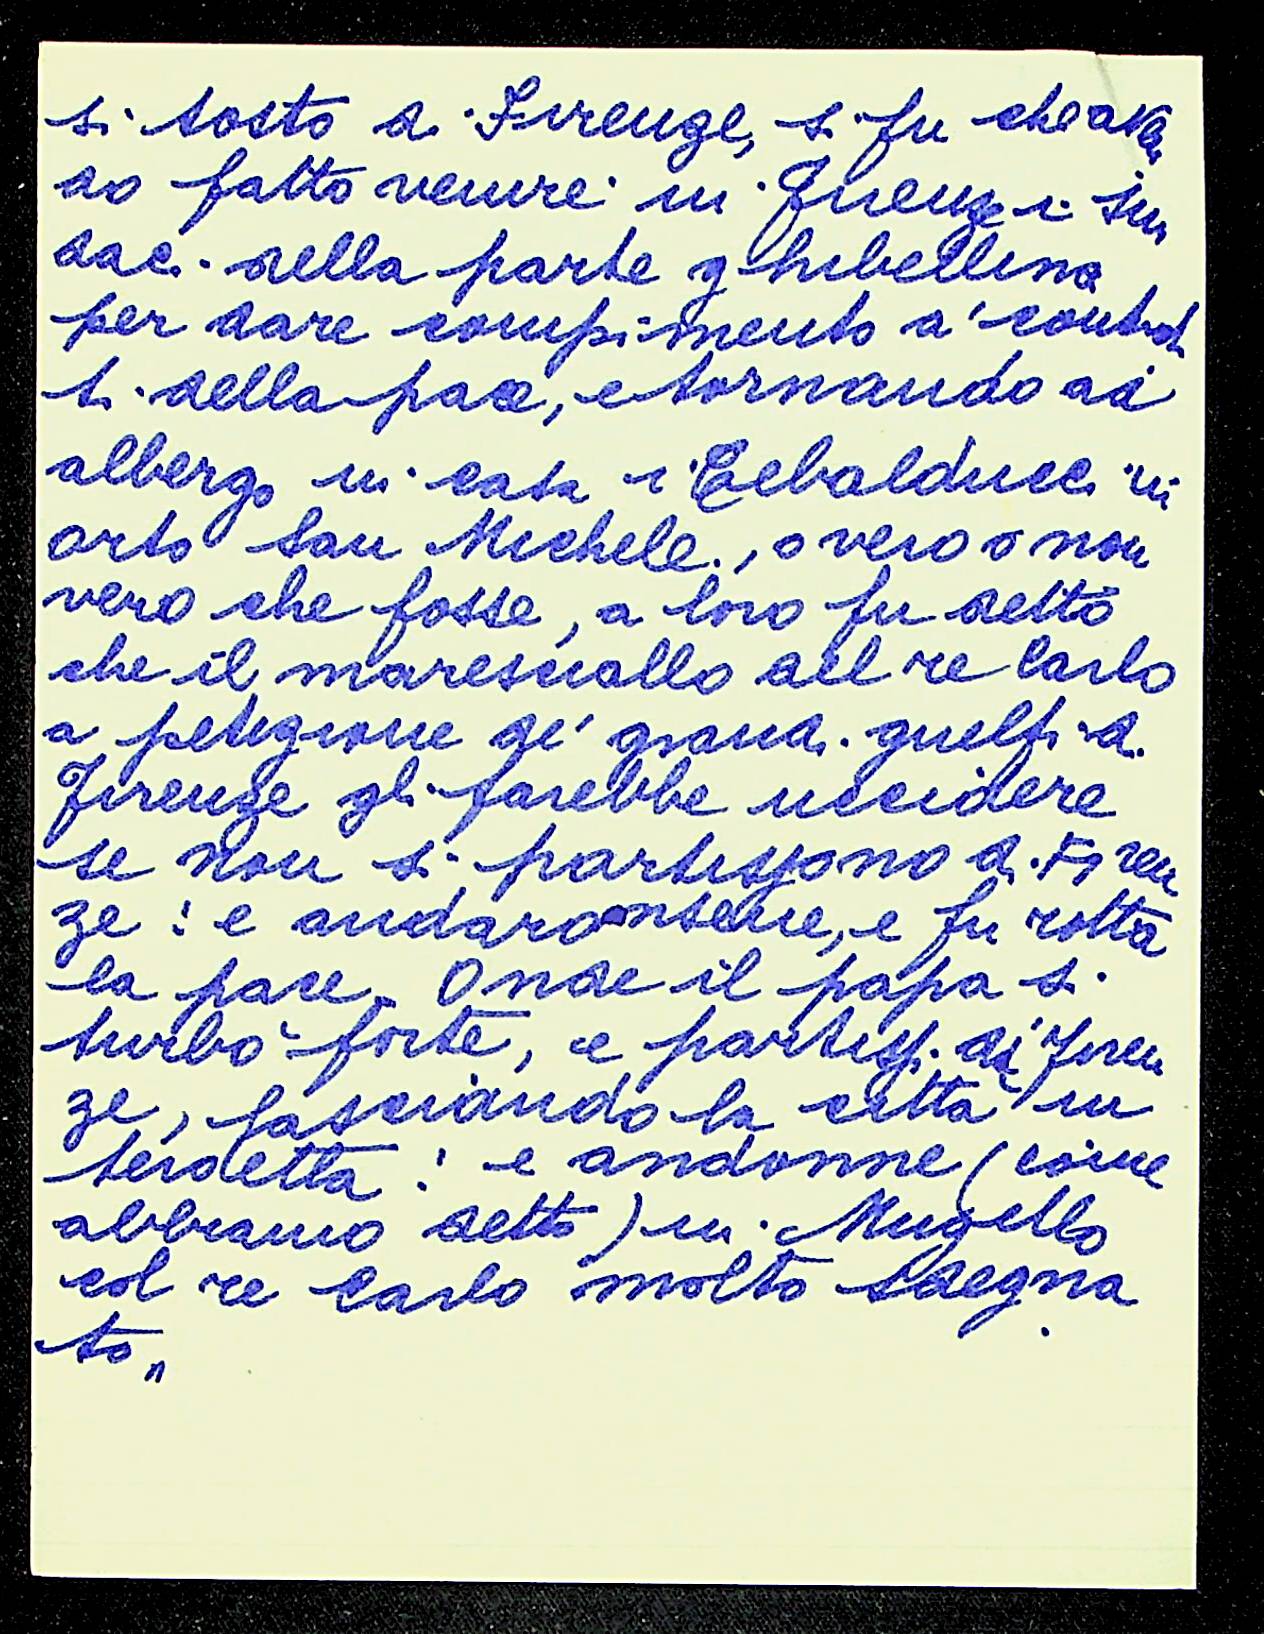 si tosto di Firenze, si fu che aven
do fatto venire in Firenze i sin
daci della parte ghibellina
per dare compimento a' contrat
ti della pace, e tornando ad
albergo in casa i Tebalducci in
orto San Michele, o vero o non
vero che fosse, a loro fu detto
che il maresciallo del re Carlo
a petizione de' grandi guelfi di
Firenze gli farebbe uccidere
se non si partissono di Firen
ze: e andaronsene, e fu rotta
la pace. Onde il papa si
turbò forte, e partissi di Firen
ze, lasciando la città in
terdetta: e andonne (come
abbiamo detto) in Mugello
col re Carlo molto sdegna
to„